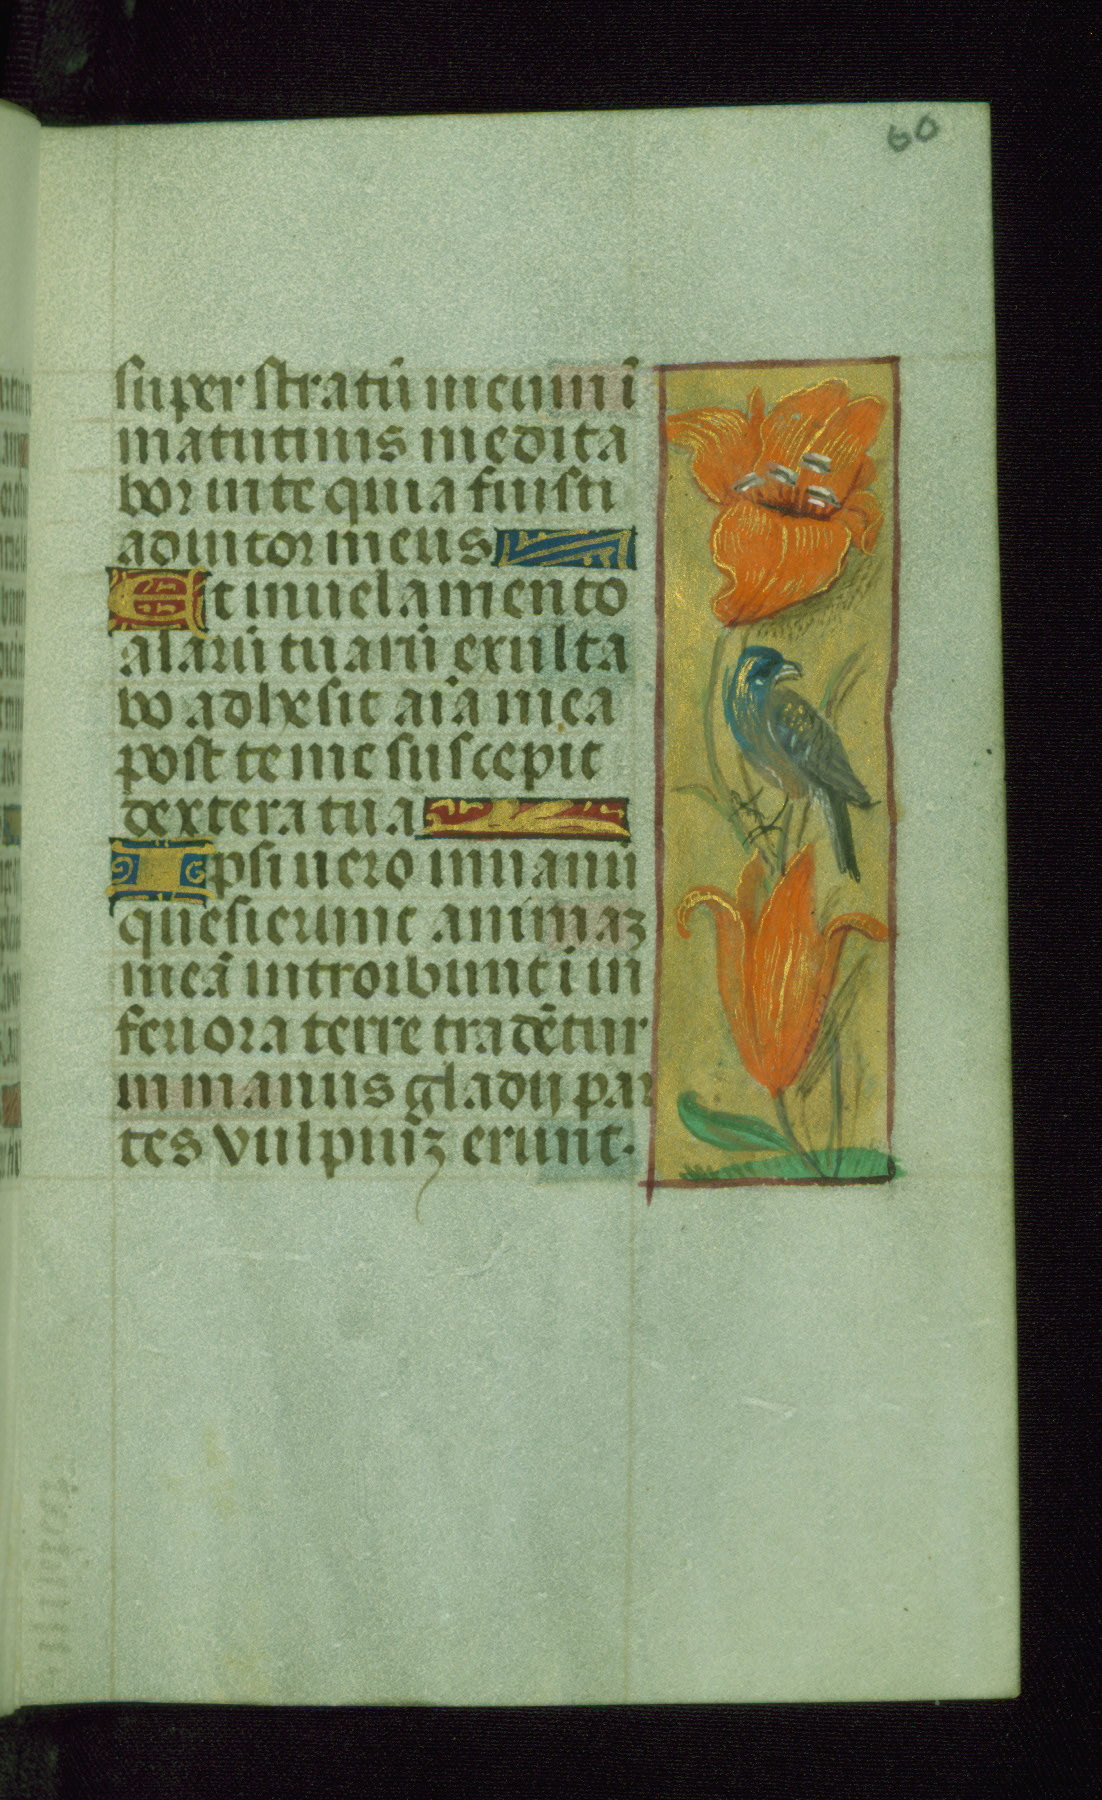 60
super stratū meum ī
matutinis medita
bor in te quia fuisti
adiutor meus
Et in uelamento
alarū tuarū exulta
bo adhesit aīa mea
post te me suscepit
dextera tua
Ipsi uero in uanū
quesierunt animaꝫ
meā introibunt ī in
feriora terre tradētur
in manus gladij par
tes vulpiūꝫ erunt.